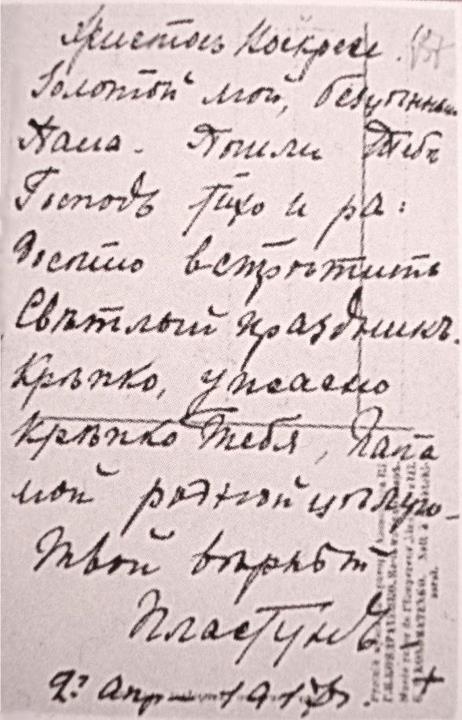 Христосъ Воскресе.
Золотой мой, безцѣнный
Папа. Пошли Тебѣ
Господь тихо и ра-
достно встрѣтить
Свѣтлый праздникъ.
Крѣпко, ужасно
крѣпко Тебя, папа
мой родной цѣлую.
Твой вѣрный
Пластунъ